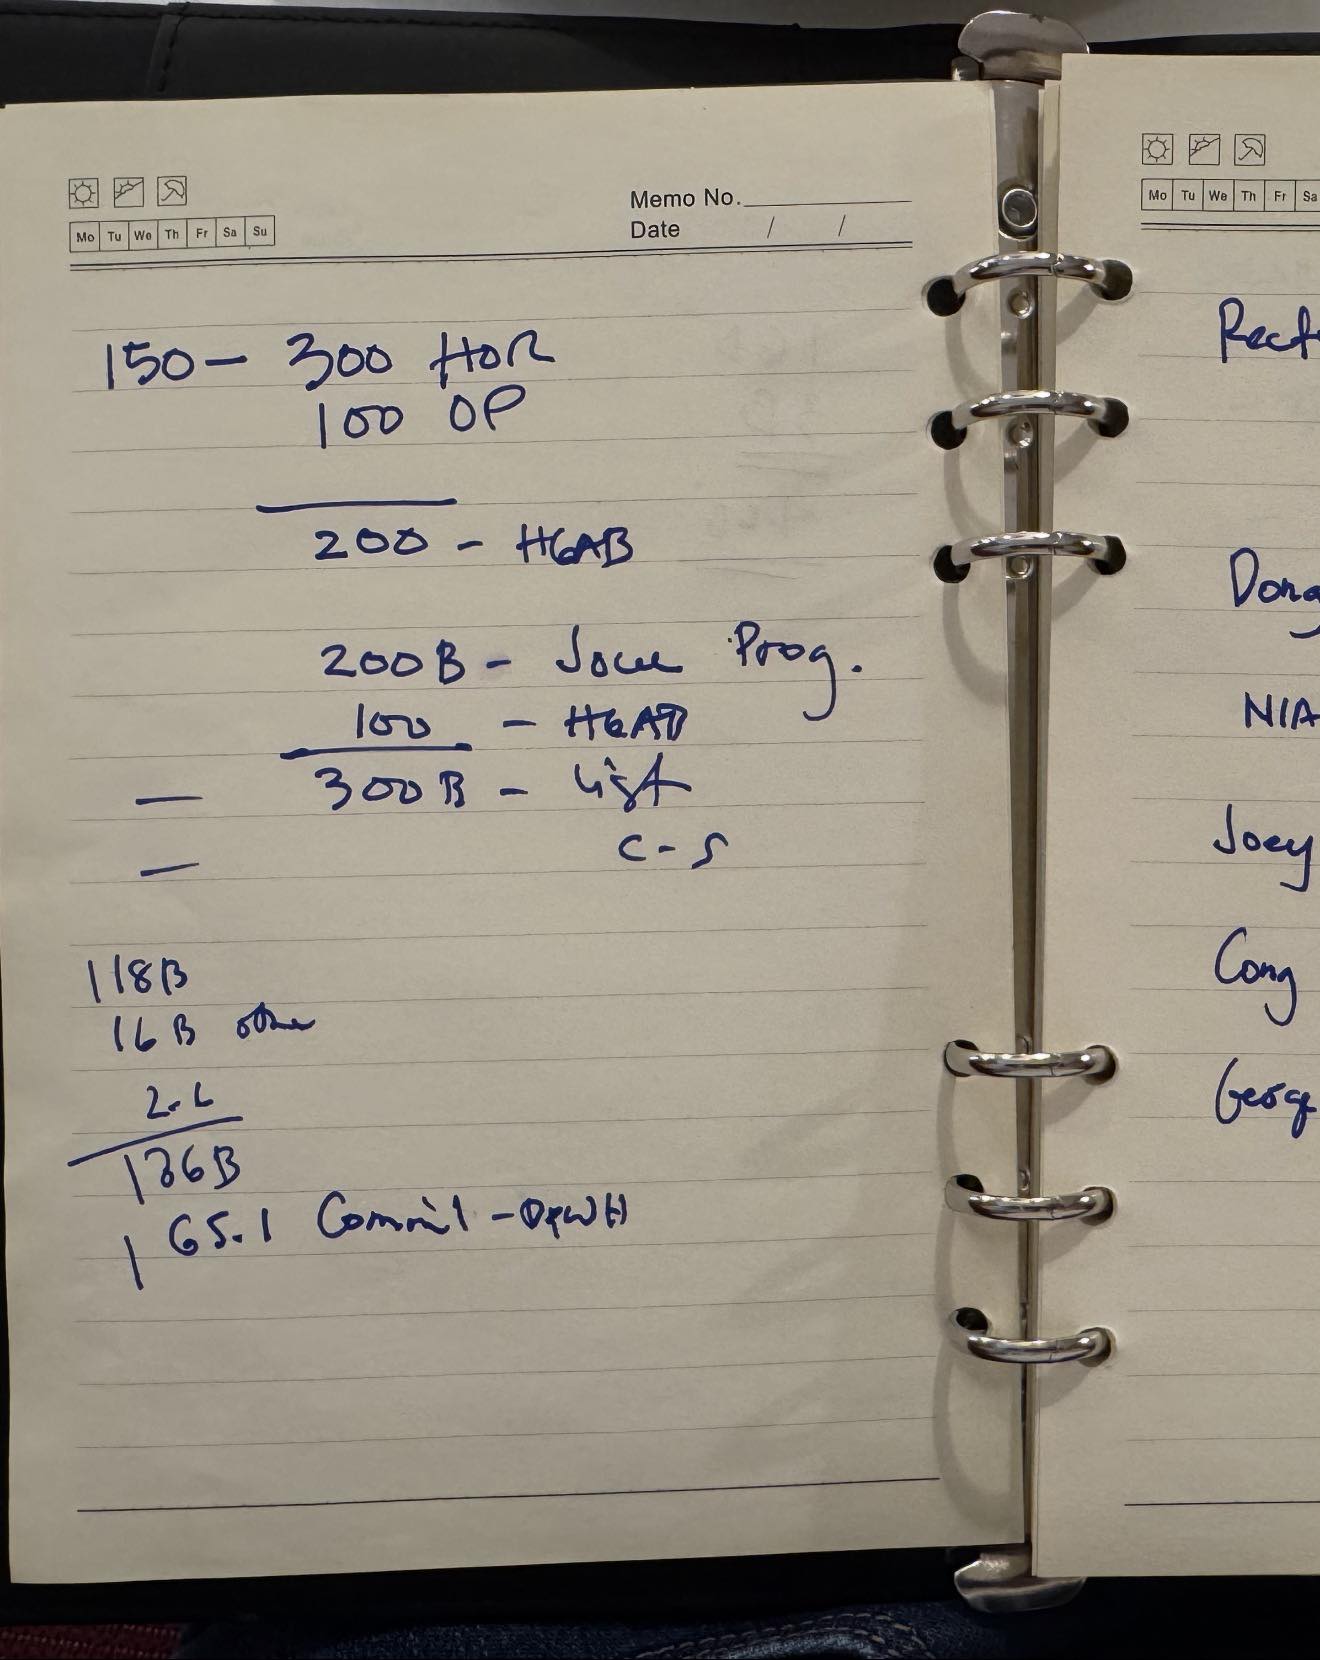 Memo No.
Mo Tu We Th Fr Sa Su
Date / /
150 — 300 HOR
100 OP
200 - HGAB
200B - Prog.
100 - HGAB
300B - list
C - S
118B
16B other
2.6
136B
165.1 Comm'l - DPWH
Mo Tu We Th Fr Sa
Rect
Dong
NIA
Joey
Cong
Georg